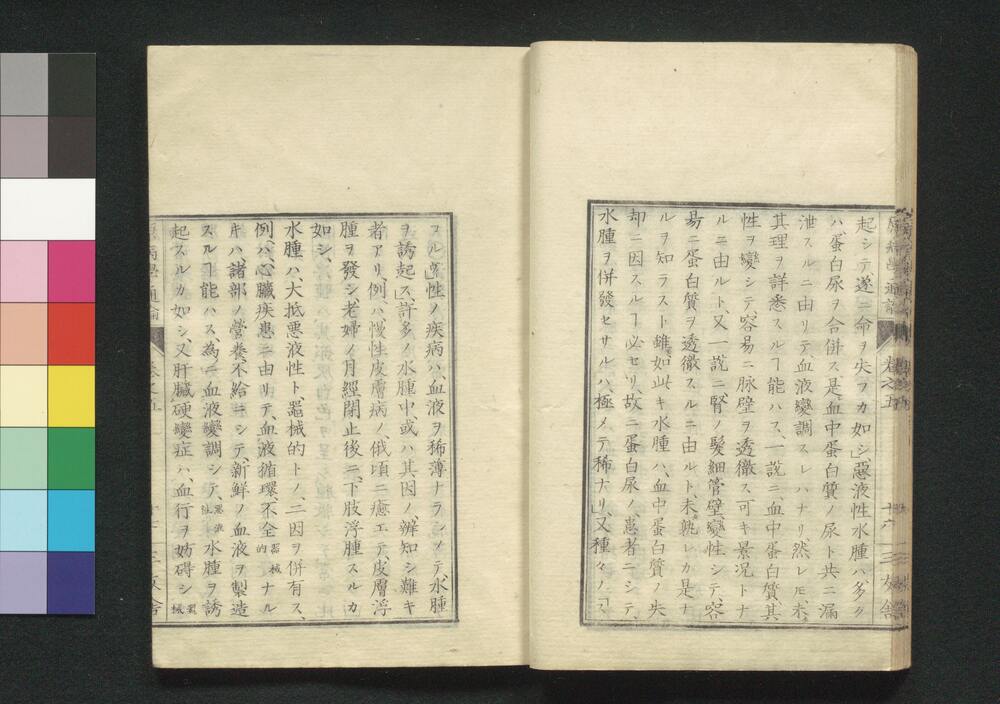 起シテ遂ニ命ヲ失フカ如シ、」惡液性水腫ハ、多ク
ハ蛋白尿ヲ合併ス、是血中蛋白質ノ尿ト共ニ漏
泄スルニ由リテ、血液變調スレハナリ、然レ𪜈未タ
其理ヲ詳悉スルヿ能ハス、一説ニ、血中蛋白質、其
性ヲ變シテ、容易ニ脉壁ヲ透徹ス可キ景况トナ
ルニ由ルト、又一説ニ腎ノ髮細管壁變性シテ、容
易ニ蛋白質ヲ透徹スルニ由ルト、未タ孰レカ是ナ
ルヲ知ラスト雖𪜈、如此キ水腫ハ、血中蛋白質ノ失
却ニ因スルヿ必セリ、故ニ蛋白尿ノ患者ニシテ、
水腫ヲ併發セサルハ、極メテ稀ナリ、」又種々ノ
原病學通論
卷之五
十六
三友舍
スル、實性ノ疾病ハ、血液ヲ稀薄ナラシメテ水腫
ヲ誘起ス、」許多ノ水腫中、或ハ其因ノ、辨知シ難キ
者アリ、例ハ、慢性皮膚病ノ、俄頃ニ癒エテ、皮膚浮
腫ヲ發シ、老婦ノ月經閉止後ニ、下肢浮腫スルカ
如シ、
水腫ハ、大抵惡液性ト、器械的トノ、二因ヲ併有ス、
例ハ、心臟疾患ニ由リテ、血液循環、不全器械的ナル
キハ、諸部ノ營養、不給ニシテ、新鮮ノ血液ヲ製造
スルヿ能ハス、為ニ血液變調シテ、惡液性水腫ヲ誘
起スルカ如シ、又肝臟硬變症ハ、血行ヲ妨碍シ器械